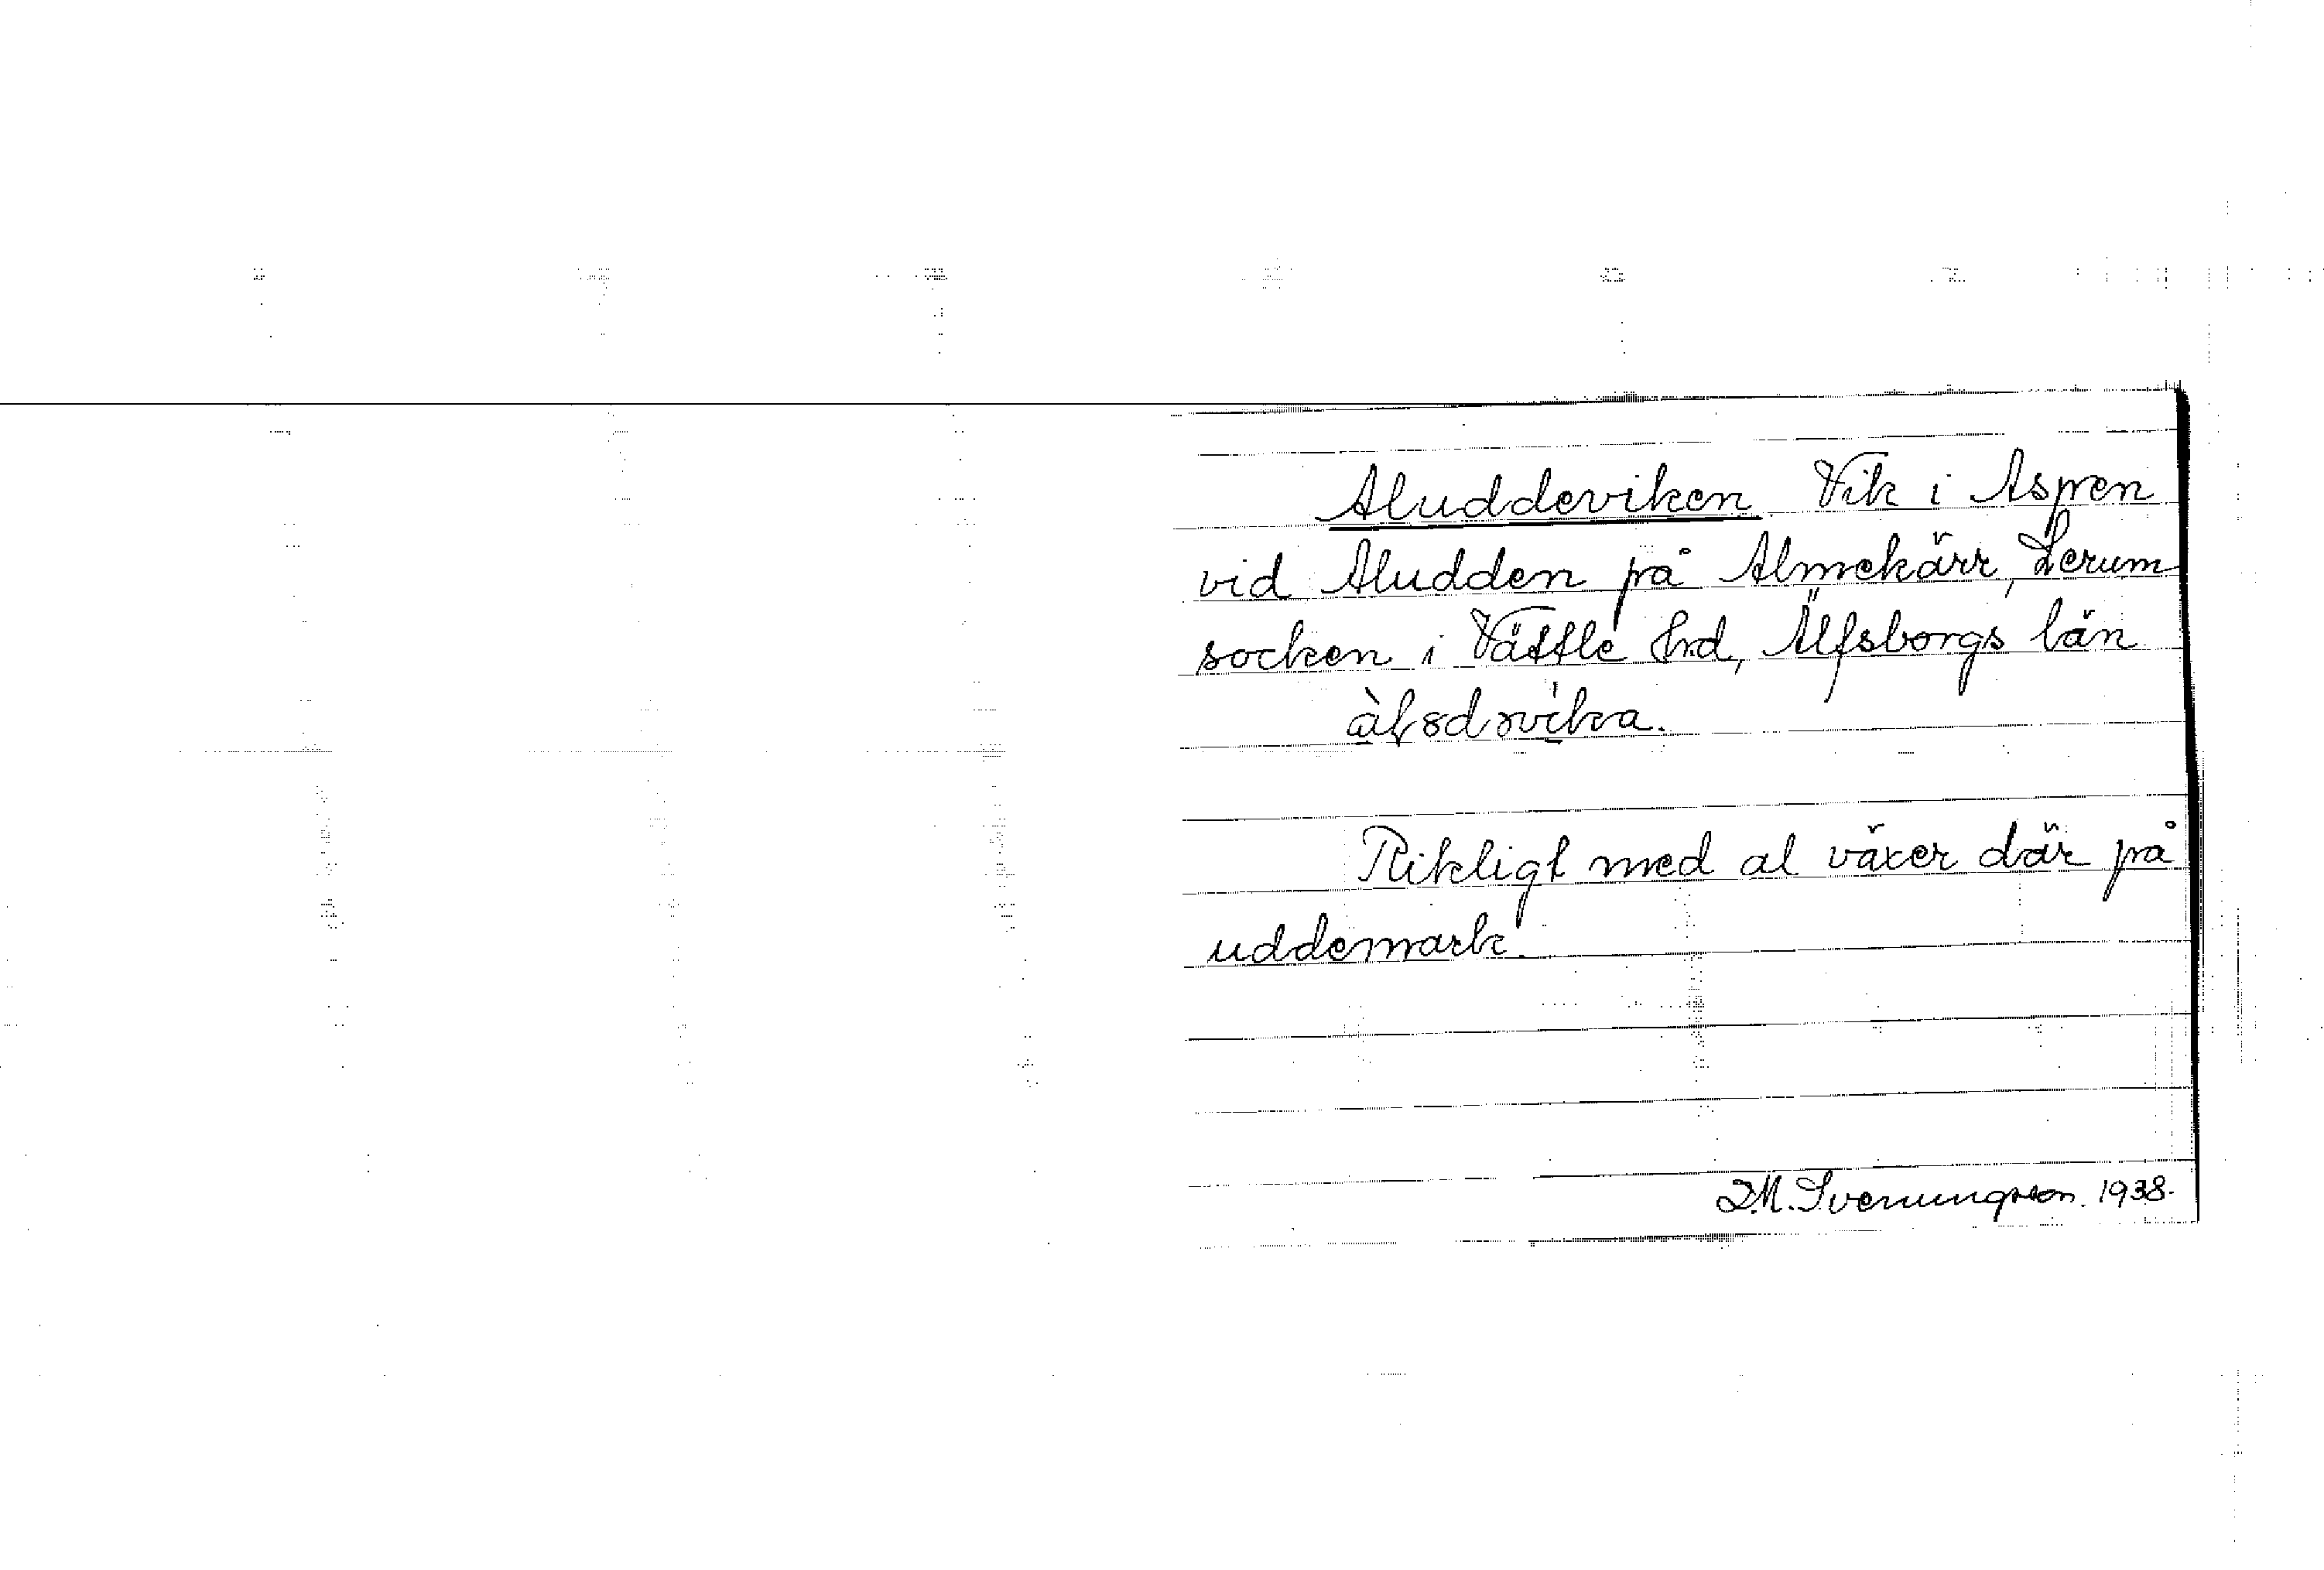 Aluddeviken Vik i Aspen
vid Aludden på Almekärr, Lerum
socken i Vättle Hrd, Älfsborgs län

Rikligt med al växer där på
uddemark.
D.M. Svenungsson. 1938.